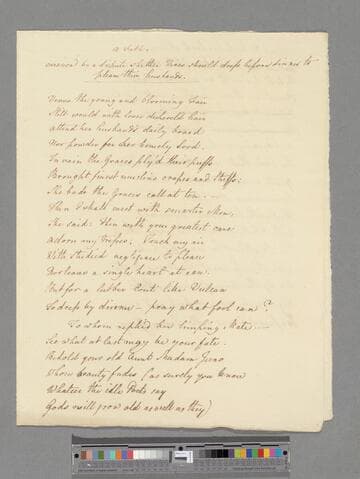 a Fable.
occasioned by a dispute whether Wives should dress before dinner to
please their husbands.
Venus the young and blooming Fair
Still would with loose dishevel'd hair
attend her husband's daily board
Nor powder for her homely Lord.
In vain the Graces ply'd their puffs
Brought finest muslins crapes and stuffs:
She bade the Graces call at ten.
Then I shall meet with smarter Men,
She said: then with your greatest care
Adorn my tresses; Touch my air
With studied negligence to please
Nor leave a single heart at ease.
But for a lubber Lout like Vulcan
To dress by dinner — pray what fool can?
To whom replied her limping Mate
See what at last may be your fate.
Behold your old Aunt Madam Juno
Whose beauty fades (as surely you know
Whate'er the idle Poets say
Gods will grow old as well as they)